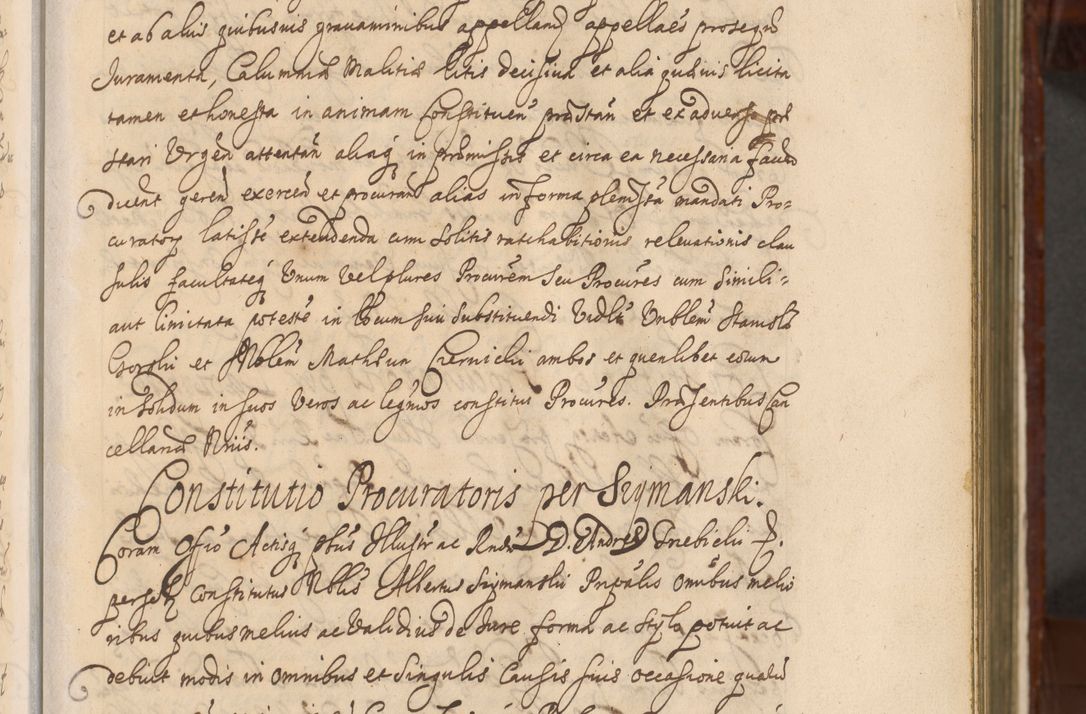 et ab aliis quibusvis gravaminibus appellanđ appellaēs proseqnđ
Juramenta, Calumniæ Malitiæ litis decisiva et alia quævis licita
tamen et honesta in animam Constituen̄ præstan̄ et ex adverso
stari Urgen̄ attentan̄ aliaq́ in præmissis et circa ea necessaria faciend
dicent geren̄ exercen̄ et procuran̄ alias in forma plenissa mandati Pro-
curatorӡ latisse extendenda cum solitis ratihabitionis relevationis clau
sulis facultateq́ Unum vel plures Procurem seu Procures cum simili-
aut limitata poteste in locum sui substituendi Vidlt Unblem Stanisla
Gorski et Nblem Matheum Czernicki ambos et quemlibet eorum
in solidum in suos Veros ac legmos constituit Procures. Præsentibus Can
cellariæ Nriis.
Constitutio Procuratoris per Szymanski.
Coram Offio Actisq́ ptbus Illustr ac Rndi D. D. Andreæ Trebicki P.
personr Constitutus Nblis Albertus Szymanski Pripalis Omibus melio
ribus quibus melius ac Validius de Jure forma ac Stylo potuit ac
debuit modis in omnibus et singulis Causis suis occasione quarū